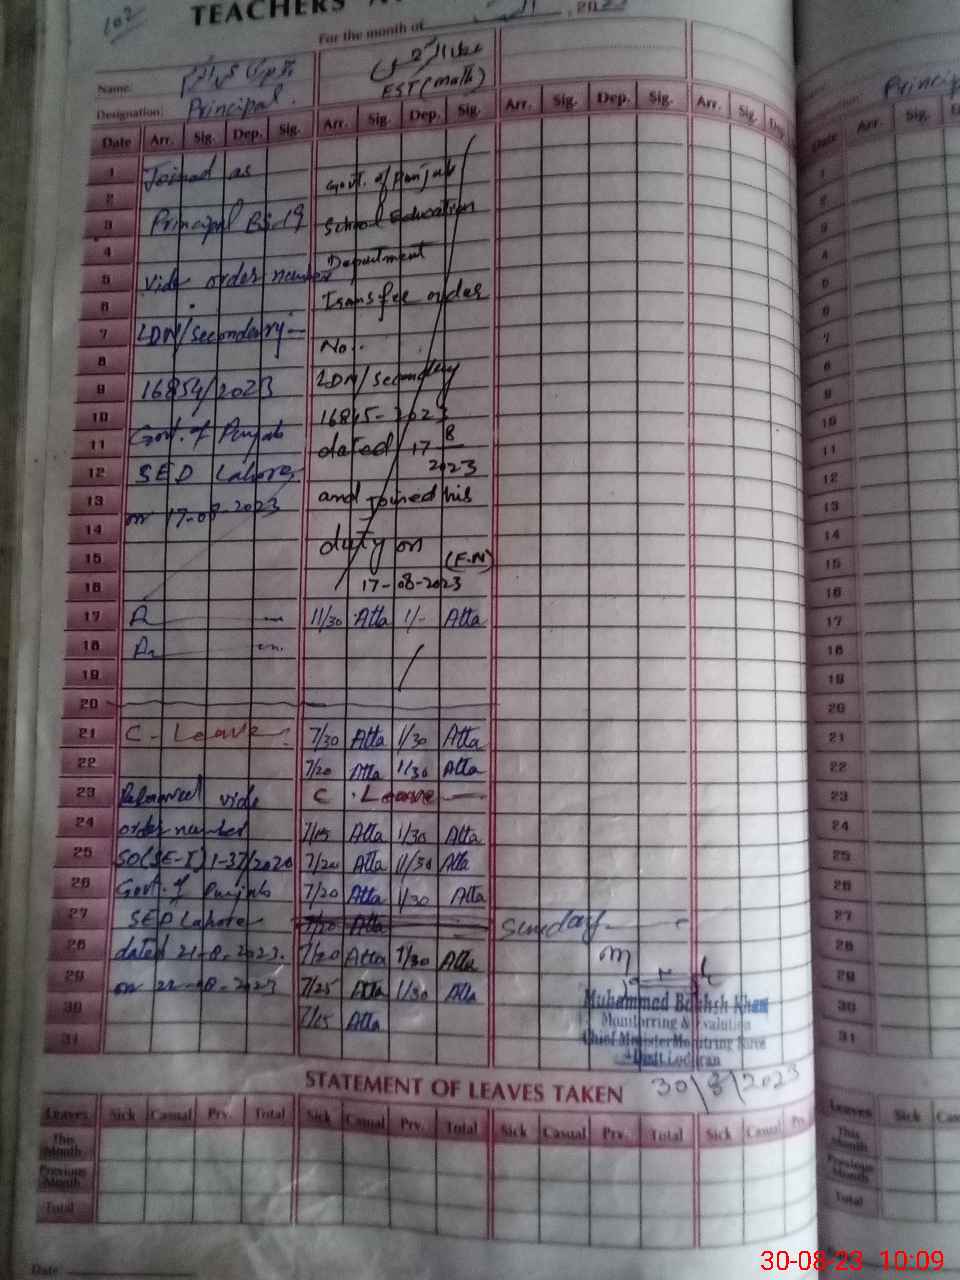 102
TEACHERS
For the month of
Name:
Designation: Principal.
EST (math)
Date Arr. Sig. Dep. Sig. Arr. Sig. Dep. Sig. Arr. Sig. Dep. Sig. Arr. Sig. Dep.
1 Joined as
Govt. of Punjab
2
3 Principal BS.19
School Education
4
Department
5 vide order number
6
Transfer order
7 LDN/Secondary:-
No:-
8
LDN/Secondary
9 16854/2023
10
16845-2023
11 Govt. of Punjab
dated 17 8
2023
12 SED Lahore
13
and Joined his
on 17-08-2023
14
duty on
15
(F.N)
16
17-08-2023
17 11/30 Atta 1/- Atta
18
19
20
21 C - Leave 7/30 Atta 1/30 Atta
22 7/20 Atta 1/30 Atta
23 vide C. Leave
24 order number 7/15 Atta 1/30 Atta
25 SO(SE-I) 1-37/2020 7/20 Atta 11/30 Atta
26 Govt. of Punjab 7/20 Atta 1/30 Atta
27 SED Lahore 7/20 Atta Sunday
28 dated 21-8-2023. 7/20 Atta 1/30 Atta
29 on 22-08-2023 7/25 Atta 1/30 Atta
30 7/15 Atta
31
Muhammad Bakhsh Khan
Monitorring & Evalution
Chief Minister Monitring Force
Distt Lodhran
30/8/2023
STATEMENT OF LEAVES TAKEN
Leaves Sick Casual Prv. Total Sick Casual Prv. Total Sick Casual Prv. Total Sick Casual Prv.
This Month
Previous Month
Total
Date
Principal
Date Arr. Sig.
1
2
3
4
5
6
7
8
9
10
11
12
13
14
15
16
17
18
19
20
21
22
23
24
25
26
27
28
29
30
31
Leaves Sick
This Month
Previous Month
Total
30-08-23 10:09